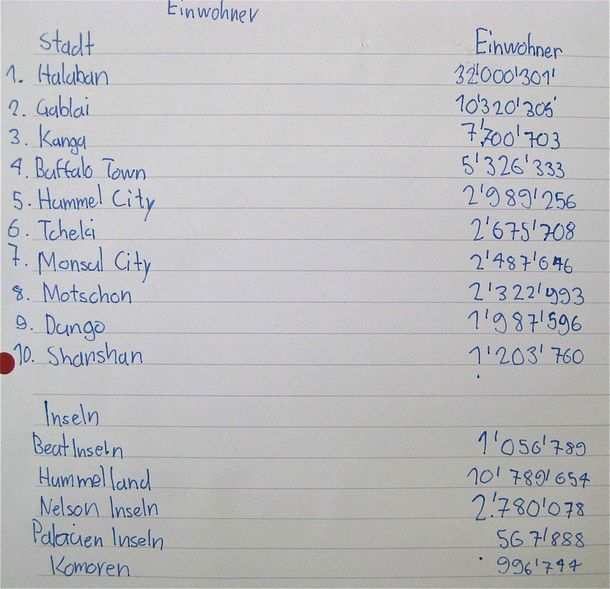 Einwohner
Stadt Einwohner
1. Halaban 32'000'301'
2. Gablai 10'320'305'
3. Kanga 7'700'703
4. Buffalo Town 5'326'333
5. Hummel City 2'989'256
6. Tcheki 2'675'708
7. Monsul City 2'487'646
8. Motschon 2'322'993
9. Dungo 1'987'596
10. Shanshan 1'203'760
Inseln
Beat Inseln 1'056'789
Hummelland 10'789'654
Nelson Inseln 2'780'078
Inseln 567'888
Komoren 996'744